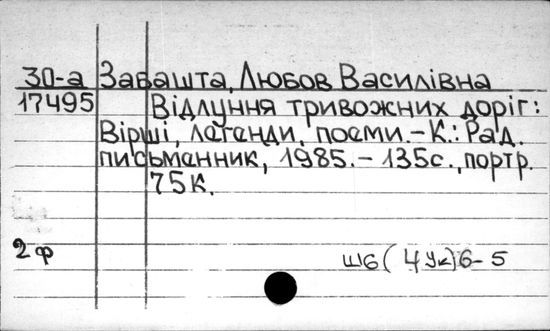 30-а Забашта, Любов Василівна
17495 Відлуння тривожних доріг:
Вірші, легенди, поеми. – К.: Рад.
письменник, 1985. – 135с., портр.
75К.
2 ф
Ш6(4Ук)6-5